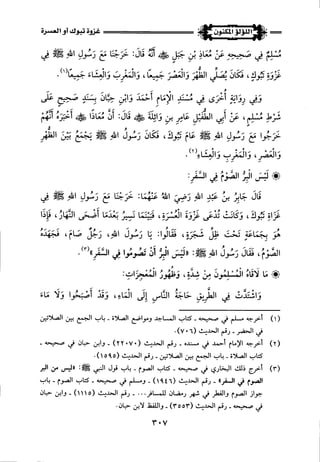 غزوة تبوك أو العسرة
اللؤلؤ المكنون
مُسْلِمٌ فِي صَحِيحِهِ عَنْ مُعَاذِ بْنِ جَبَلٍ ﵁ قَالَ: خَرَجْنَا مَعَ رَسُولِ اللهِ ﷺ فِي
غَزْوَةِ تَبُوكَ، فَكَانَ يُصَلِّي الظُّهْرَ وَالعَصْرَ جَمِيعًا، وَالمَغْرِبَ وَالعِشَاءَ جَمِيعًا(١).
وَفِي رِوَايَةٍ أُخْرَى فِي مُسْنَدِ الإِمَامِ أَحْمَدَ وَابْنِ حِبَّانَ بِسَنَدٍ صَحِيحٍ عَلَى
شَرْطِ مُسْلِمٍ، عَنْ أَبِي الطُّفَيْلِ عَامِرِ بْنِ وَاثِلَةَ ﵁ أَنَّ مُعَاذًا ﵁ أَخْبَرَهُ أَنَّهُمْ
خَرَجُوا مَعَ رَسُولِ اللهِ ﷺ عَامَ تَبُوكَ، فَكَانَ رَسُولُ اللهِ ﷺ يَجْمَعُ بَيْنَ الظُّهْرِ
وَالعَصْرِ، وَالمَغْرِبِ وَالعِشَاءِ(٢).
◉ لَيْسَ البِرُّ الصَّوْمَ فِي السَّفَرِ:
قَالَ جَابِرُ بْنُ عَبْدِ اللهِ رَضِيَ اللهُ عَنْهُمَا: خَرَجْنَا مَعَ رَسُولِ اللهِ ﷺ فِي
غَزْوَةِ تَبُوكَ، وَكَانَتْ تُدْعَى غَزْوَةَ العُسْرَةِ، فَبَيْنَمَا نَسِيرُ بَعْدَمَا أَضْحَى النَّهَارُ، فَإِذَا
هُوَ بِجَمَاعَةٍ تَحْتَ ظِلِّ شَجَرَةٍ، فَقَالُوا: يَا رَسُولَ اللهِ، رَجُلٌ صَامَ، فَجَهَدَهُ
الصَّوْمُ، فَقَالَ رَسُولُ اللهِ ﷺ: «لَيْسَ البِرُّ أَنْ تَصُومُوا فِي السَّفَرِ»(٣).
◉ مَا لَاقَاهُ المُسْلِمُونَ مِنْ شِدَّةٍ، وَظُهُورُ المُعْجِزَاتِ:
وَاشْتَدَّتْ فِي الطَّرِيقِ حَاجَةُ الجَيْشِ إِلَى المَاءِ، فَقَدْ أَصْبَحُوا وَلَا مَاءَ
(١) أخرجه مسلم في صحيحه - كتاب المسافرين وقصرها - باب الجمع بين الصلاتين
في الحضر - رقم الحديث (٧٠٦).
(٢) أخرجه الإمام أحمد في مسنده - رقم الحديث (٢٢٠٧٠) - وابن حبان في صحيحه -
كتاب الصلاة - باب الجمع بين الصلاتين - رقم الحديث (١٥٩٥).
(٣) أخرج ذلك البخاري في صحيحه - كتاب الصوم - باب قول النبي ﷺ: «ليس من البر
الصوم في السفر» - رقم الحديث (١٩٤٦) - ومسلم في صحيحه - كتاب الصوم - باب
جواز الصوم والفطر في شهر رمضان للمسافر... - رقم الحديث (١١١٥) - وابن حبان
في صحيحه - رقم الحديث (٣٥٥٣) - واللفظ لابن حبان.
٣٠٧